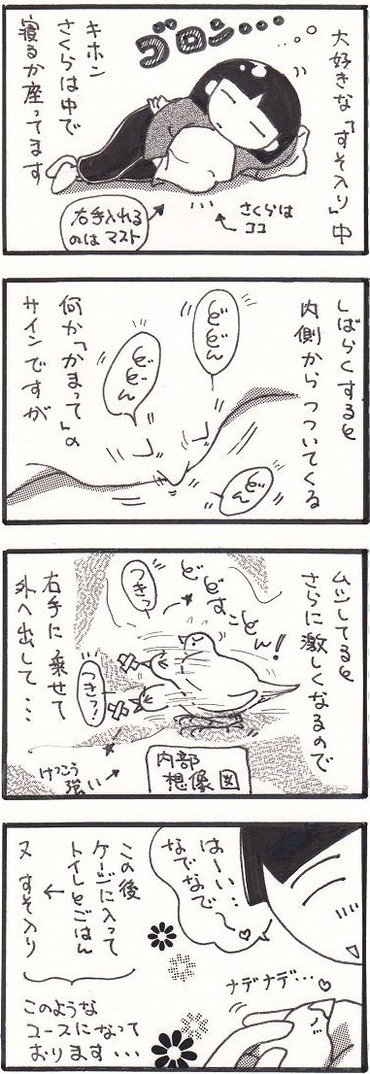 大好きな「すそ入り」中
ゴロン・・・
キホン
さくらは中で
寝るか座ってます
さくらは
ココ
右手入れる
のはマスト
しばらくすると
内側からつついてくる
どどん
どどん
どん
何か「かまって」の
サインですが
ムシしてると
さらに激しくなるので
どどすことん!
つきっ
つきっ!
右手に乗せて
外へ出して・・・
けっこう
強い
内部
想像図
はーい・・
なでなで〜
ナデナデ・・・
この後
ケージに入って
トイレとごはん
又 すそ入り
このような
コースになって
おります・・・